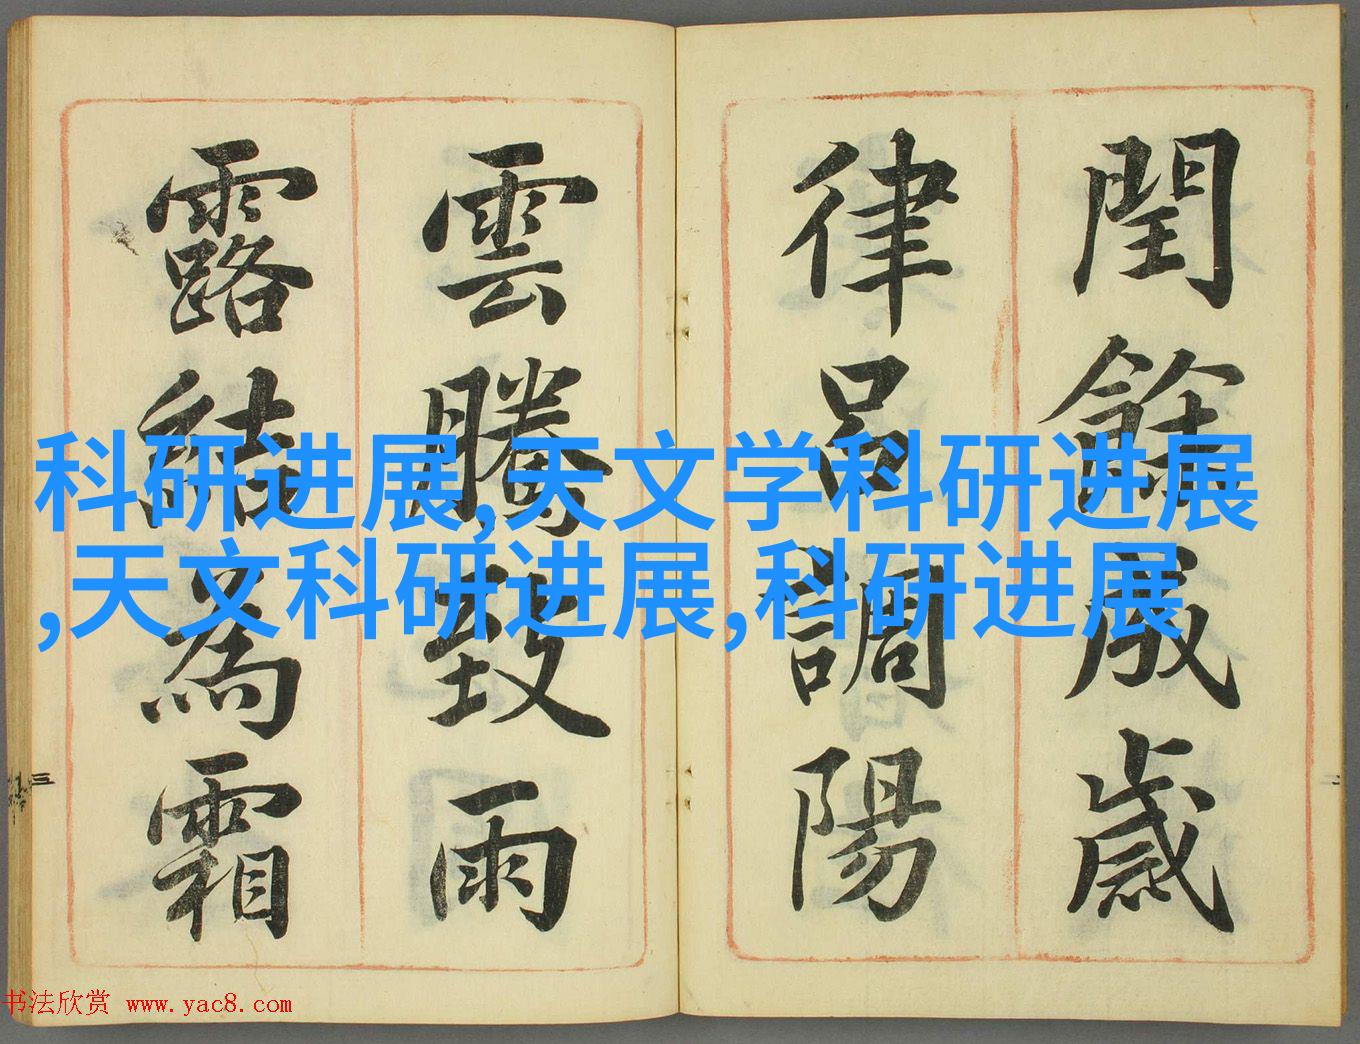 閏餘成歲
律呂調陽
雲騰致雨
露結為霜
科研进展,天文学科研进展
,天文科研进展,科研进展
三
二
书法欣赏 www.yac8.com